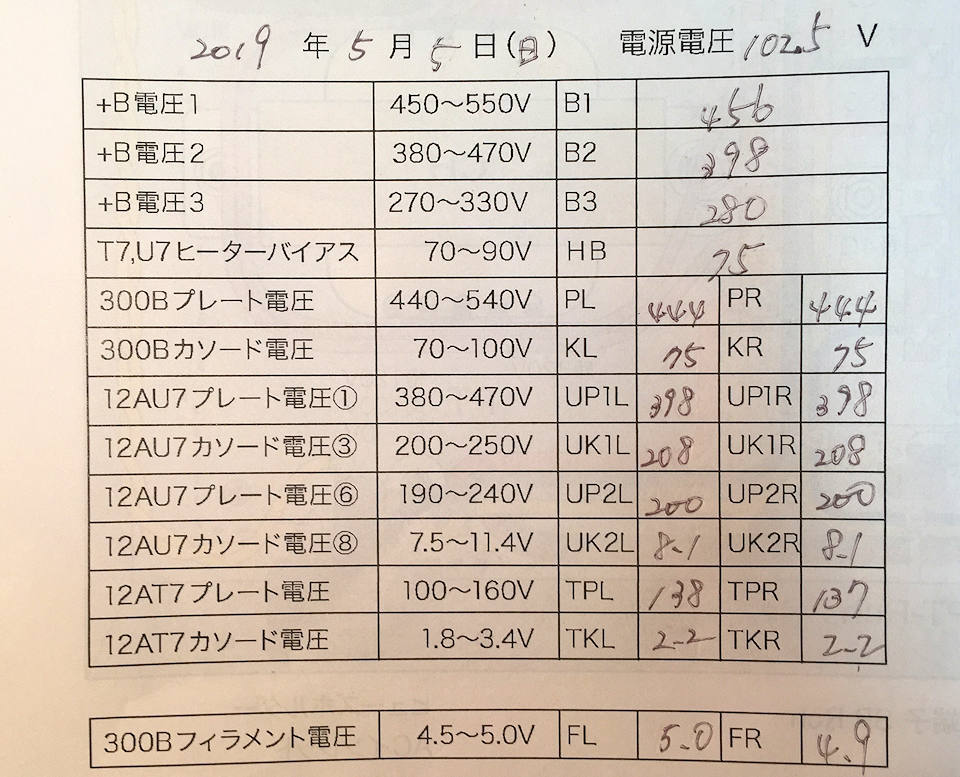 2019 年 5 月 5 日(日) 電源電圧 102.5 V
+B電圧1 450〜550V B1 456
+B電圧2 380〜470V B2 398
+B電圧3 270〜330V B3 280
T7,U7ヒーターバイアス 70〜90V HB 75
300Bプレート電圧 440〜540V PL 444 PR 444
300Bカソード電圧 70〜100V KL 75 KR 75
12AU7プレート電圧① 380〜470V UP1L 398 UP1R 398
12AU7カソード電圧③ 200〜250V UK1L 208 UK1R 208
12AU7プレート電圧⑥ 190〜240V UP2L 200 UP2R 200
12AU7カソード電圧⑧ 7.5〜11.4V UK2L 8.1 UK2R 8.1
12AT7プレート電圧 100〜160V TPL 138 TPR 137
12AT7カソード電圧 1.8〜3.4V TKL 2.2 TKR 2.2
300Bフィラメント電圧 4.5〜5.0V FL 5.0 FR 4.9